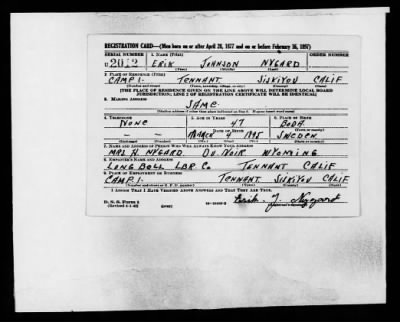 REGISTRATION CARD—(Men born on or after April 28, 1877 and on or before February 16, 1897)
SERIAL NUMBER 1. NAME (Print) ORDER NUMBER
U 2012 ERIK JOHNSON NYGARD
(First) (Middle) (Last)
2. PLACE OF RESIDENCE (Print)
CAMP 1. TENNANT SISKIYOU CALIF
(Number and street) (Town, township, village, or city) (County) (State)
[THE PLACE OF RESIDENCE GIVEN ON THE LINE ABOVE WILL DETERMINE LOCAL BOARD
JURISDICTION; LINE 2 OF REGISTRATION CERTIFICATE WILL BE IDENTICAL]
3. MAILING ADDRESS
SAME
[Mailing address if other than place indicated on line 2. If same insert word same]
4. TELEPHONE 5. AGE IN YEARS 6. PLACE OF BIRTH
NONE 47 BODA
DATE OF BIRTH
MARCH 4 1895 SWEDEN
(Exchange) (Number) (Mo.) (Day) (Yr.) (State or country)
7. NAME AND ADDRESS OF PERSON WHO WILL ALWAYS KNOW YOUR ADDRESS
MRS H. NYGARD DU NOIR WYOMING
8. EMPLOYER'S NAME AND ADDRESS
LONG BELL LBR. Co TENNANT CALIF
9. PLACE OF EMPLOYMENT OR BUSINESS
CAMP 1. TENNANT SISKIYOU CALIF
(Number and street or R. F. D. number) (Town) (County) (State)
I AFFIRM THAT I HAVE VERIFIED ABOVE ANSWERS AND THAT THEY ARE TRUE.
D. S. S. Form 1
(Revised 4-1-42) (over)
Erik J. Nygard